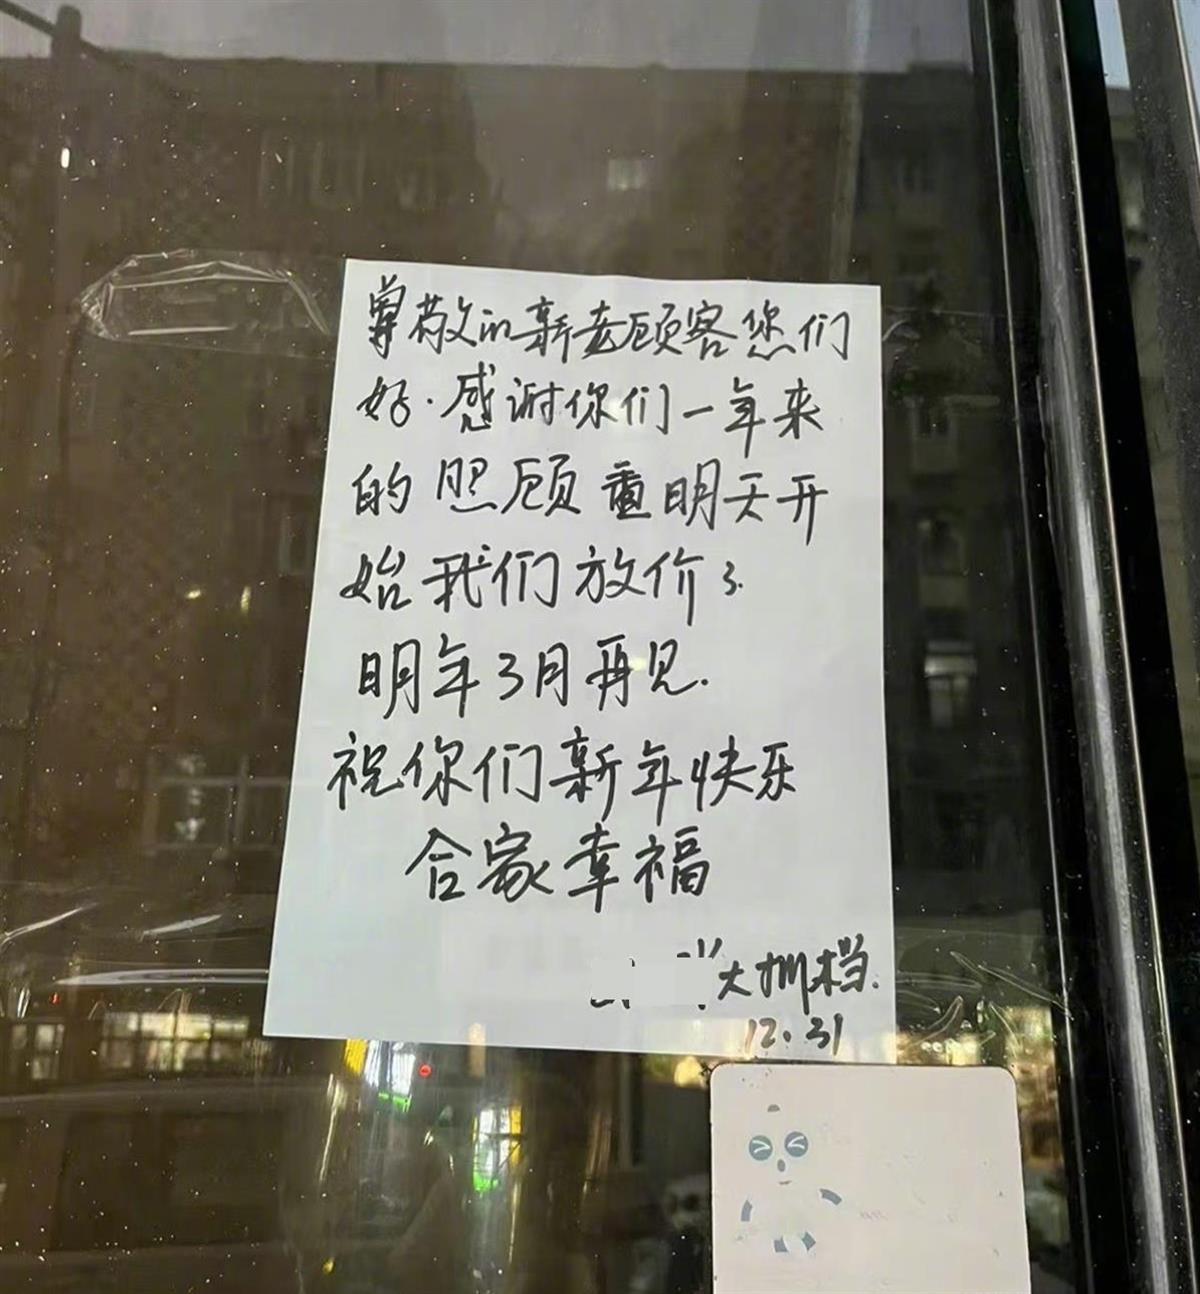 尊敬的新老顾客您们
好.感谢你们一年来
的照顾 重明天开
始我们放价了.
明年3月再见.
祝你们新年快乐
合家幸福
大排档.
12.31